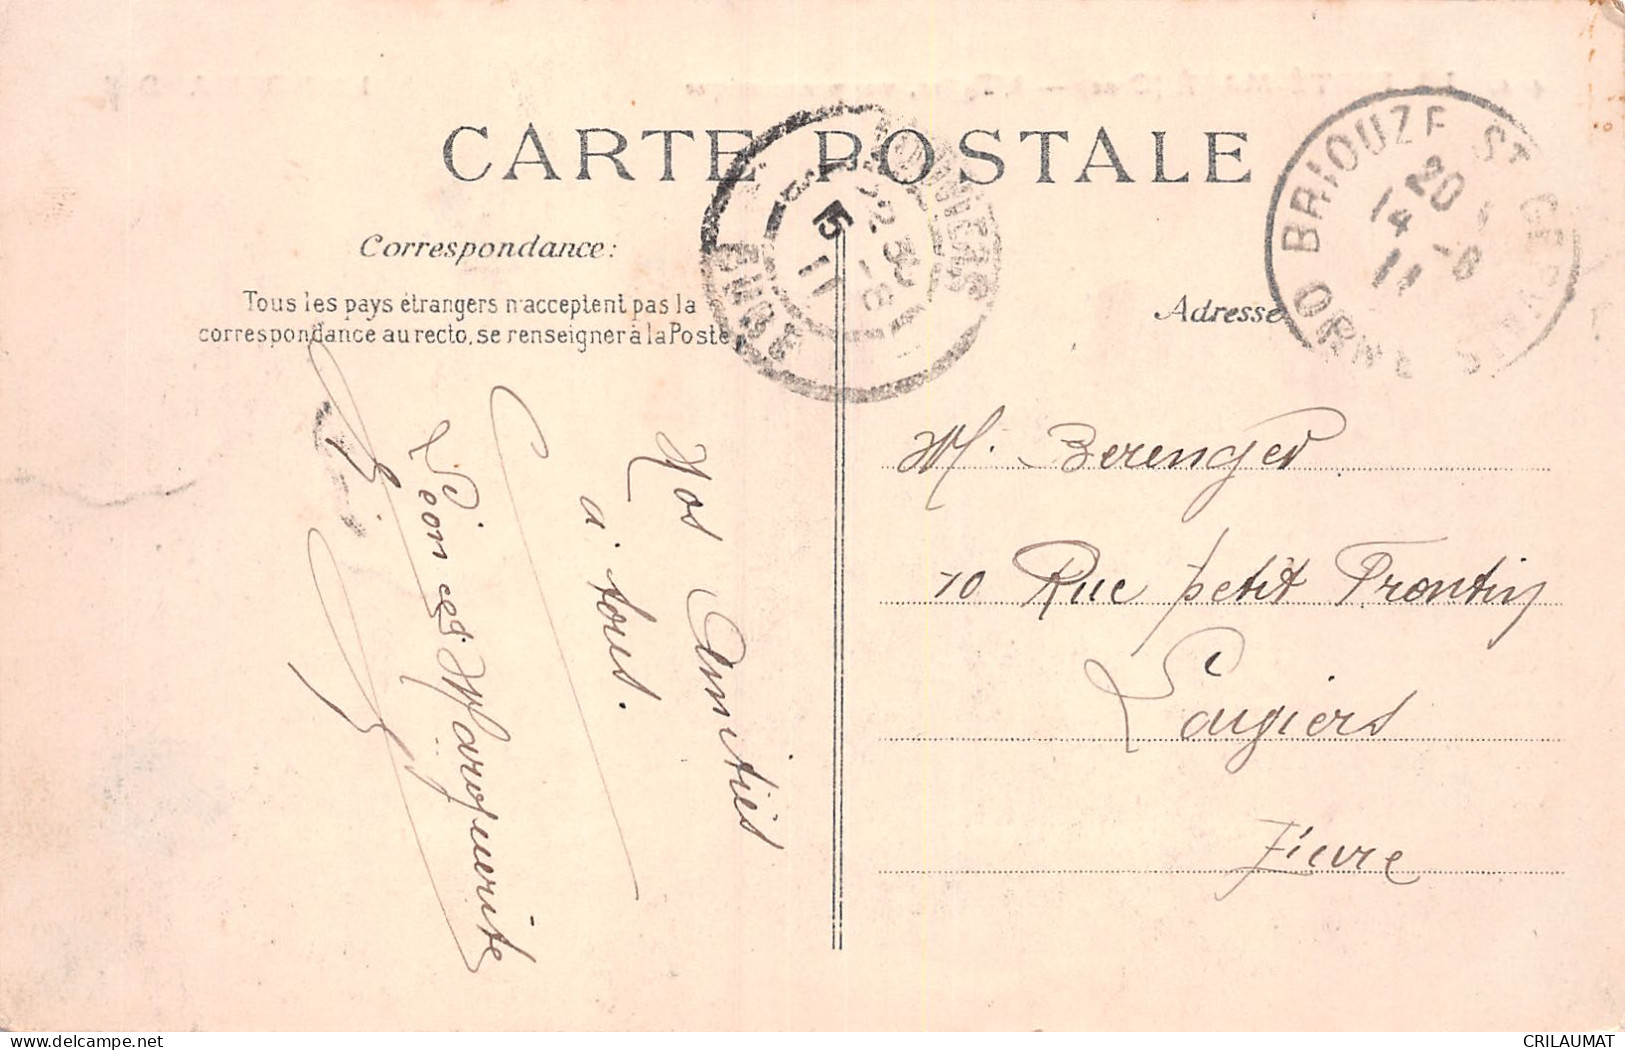 CARTE POSTALE
Correspondance:
Tous les pays étrangers n'acceptent pas la
correspondance au recto, se renseigner à la Poste
Nos Amitiés
à tous.
Léon et Marguerite
Adresse
M. Berenger
10 Rue petit Frontin
Lougiers
Eure
BRIOUZE ST GERVAIS
ORNE
20
14 -8
11
EURE
delcampe.net
CRILAUMAT